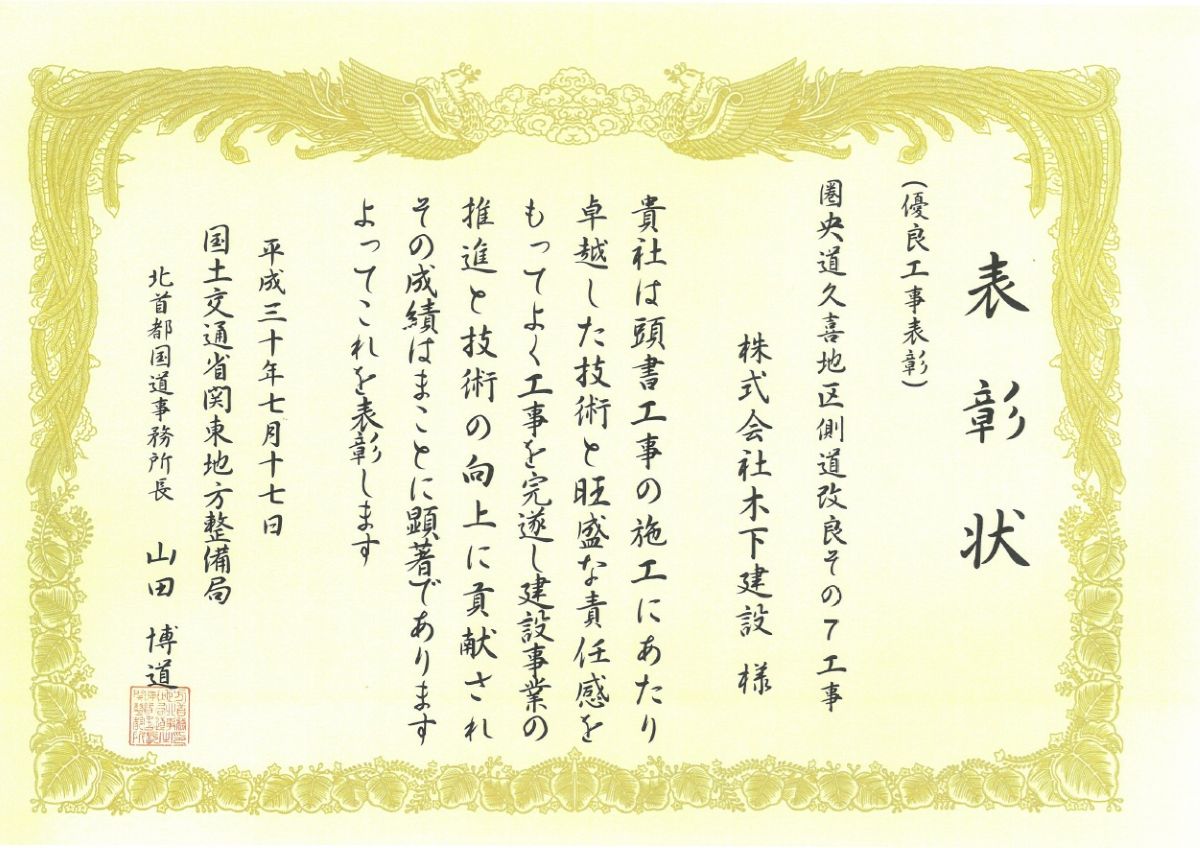 表彰状
(優良工事表彰)
圏央道久喜地区側道改良その7工事
株式会社木下建設 様
貴社は頭書工事の施工にあたり
卓越した技術と旺盛な責任感を
もってよく工事を完遂し建設事業の
推進と技術の向上に貢献され
その成績はまことに顕著であります
よってこれを表彰します
平成三十年七月十七日
国土交通省関東地方整備局
北首都国道事務所長 山田 博道